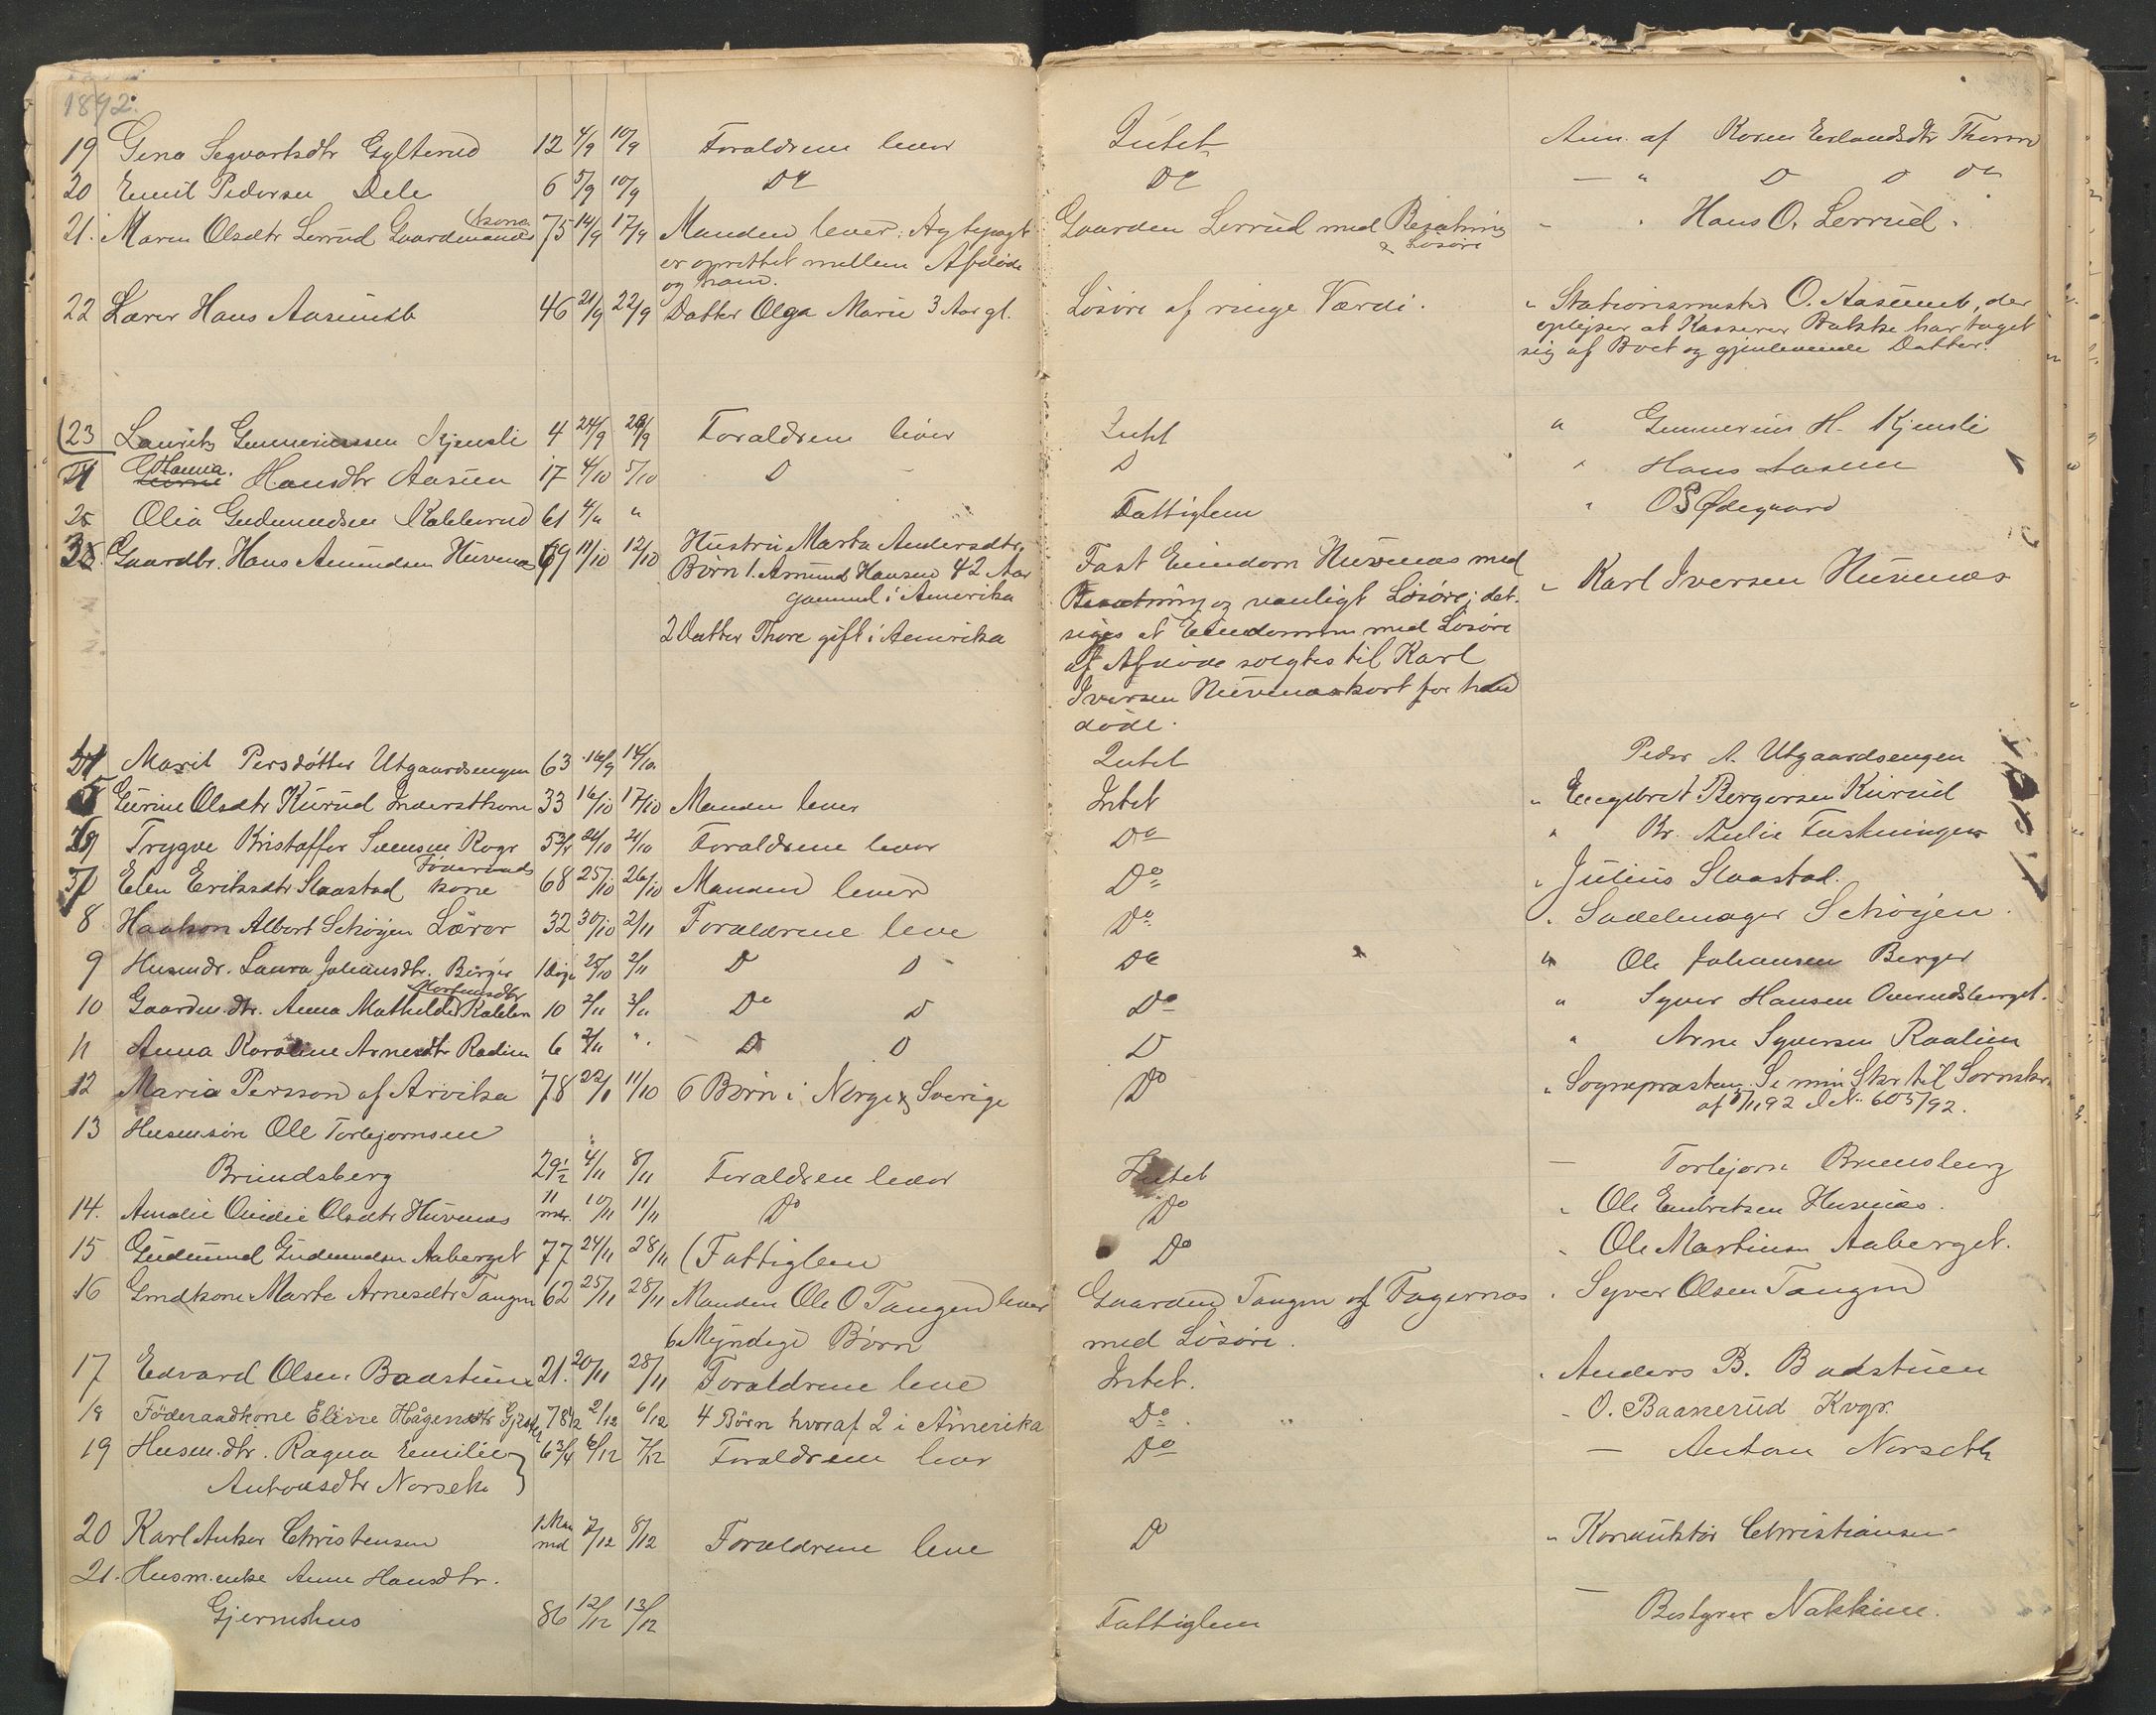 1892.
19 Gina Segvartsdtr Gylterud 12 4/9 10/9 Forældrene lever Intet Anm. af Karen Erlandsdtr Thorrud
20 Emil Pedersen Dele 6 5/9 10/9 Do Do — " D D Do
21. Maren Olsdtr Lerrud Gaardmands kone 75 14/9 17/9 Manden lever: Ægtepagt Gaarden Lerrud med Besætning - " Hans O. Lerrud.
er oprettet mellem Afdøde & Løsøre
og ham.
22 Lærer Hans Aasundb 46 21/9 22/9 Datter Olga Marie 3 Aar gl. Løsøre af ringe Værdi. " Stationsmester O. Aasundb, der
oplyser at Kasserer Bakke har taget
sig af Boet og gjenlevende Datter.
23 Laurits Gunneriussen Kjensli 4 24/9 26/9 Forældrene lever Intet " Gunnerius H. Kjensli
Hanna. Hansdtr Aasen 17 4/10 5/10 D D " Hans Aasen
25 Olia Gudmundsen Kablerud 61 4/10 " Fattiglem " O S Ødegaard
3 Gaardbr. Hans Amundsen Huvenæs 69 11/10 12/10 Hustru Marta Andersdtr.
Børn 1. Amund Hansen 42 Aar Fast Eiendom Huvenæs med " Karl Iversen Huvenæs
gammel i Amerika Besætning og vanligt Løsøre; det
2 Datter Thore gift i Amerika siges at Eiendommen med Løsøre
af Afdøde solgtes til Karl
Iversen Huvenæs kort før han
døde.
4 Marit Persdotter Utgaardsengen 63 14/10 Intet Peder A. Utgaardsengen
5 Gurine Olsdtr Kurud Inderstkone 33 16/10 17/10 Manden lever Intet " Engebret Bergersen Kurud
Trygve Kristoffer Svensen Kogr 5 3/4 24/10 Forældrene lever Do " Kr. Aulie
7 Elen Eriksdtr Slaastad Føderaads kone 68 25/10 26/10 Manden lever Do " Julius Slaastad.
8 Haakon Albert Schøyen Lærer 32 30/10 2/11 Forældrene leve Do " Sadelmager Schøyen.
9 Husmdr. Laura Johansdtr. Berger 25/10 2/11 D D Do " Ole Johansen Berger
10 Gaardm.dtr. Anna Mathilde Mortensdtr 10 2/11 3/11 Do D Do " Syver Hansen
11 Anna Karoline Arnesdtr Raalien 6 2/11 " D D D " Arne Syversen Raalien
12 Maria Persson af Arvika 78 22/1 11/10 6 Børn i Norge & Sverige Do " Sognepræsten. Se min Skr til Sorenskr.
af 5/11 92 I No 605/92.
13 Husm.søn Ole Torbjørnsen
Brundsberg 29 1/2 4/11 8/11 Forældren lever Intet — Torbjørn Brunsberg
14. Amalie Olsdtr Huvenæs 11 mdr. 10/11 11/11 Do Do " Ole Embretsen Huvenæs.
15 Gudmund Gudmundsen Aaberget 77 24/11 28/11 (Fattiglem Do " Ole Martinsen Aaberget.
16 Grmdkone Marte Arnesdtr Tangen 62 25/11 28/11 Manden Ole O Tangen lever Gaarden Tangen og Fagernæs " Syver Olsen Tangen
6 Myndige Børn med Løsøre.
17 Edvard Olsen Baastuen 21. 20/11 28/11 Forældrene leve Intet. " Anders B. Badstuen
18 Føderaadkone Eline Hågensdtr 78 1/2 2/12 6/12 4 Børn hvoraf 2 i Amerika Do. - O. Baanerud Kvgr.
19 Husm.dtr. Ragna Emilie 6 3/4 6/12 7/12 Forældrene lever Do — Anton Norseth
Antonsdtr Norseth
20 Karl Anker Christensen 1 Maaned 7/12 8/12 Forældrene leve Do " Konduktør Christiansen
21. Husm.enke Anne Hansdtr.
Gjermshus 86 12/12 13/12 Fattiglem — Bestyrer Nakkim.